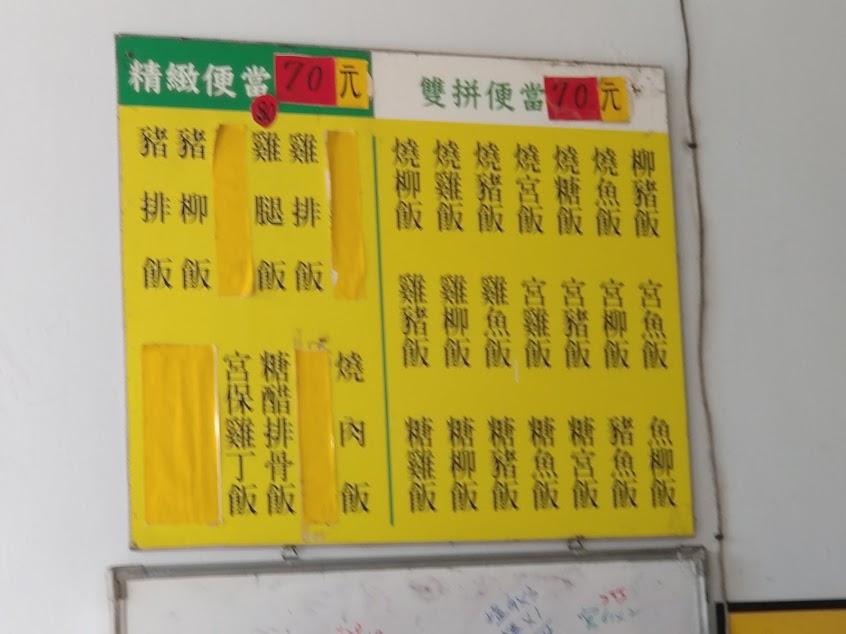 精緻便當70元
雙拼便當70元
豬排飯
豬柳飯
雞腿飯
雞排飯
宮保雞丁飯
糖醋排骨飯
燒肉飯
燒柳飯
燒雞飯
燒豬飯
燒宮飯
燒糖飯
燒魚飯
柳豬飯
雞豬飯
雞柳飯
雞魚飯
宮雞飯
宮豬飯
宮柳飯
宮魚飯
糖雞飯
糖柳飯
糖豬飯
糖魚飯
糖宮飯
豬魚飯
魚柳飯